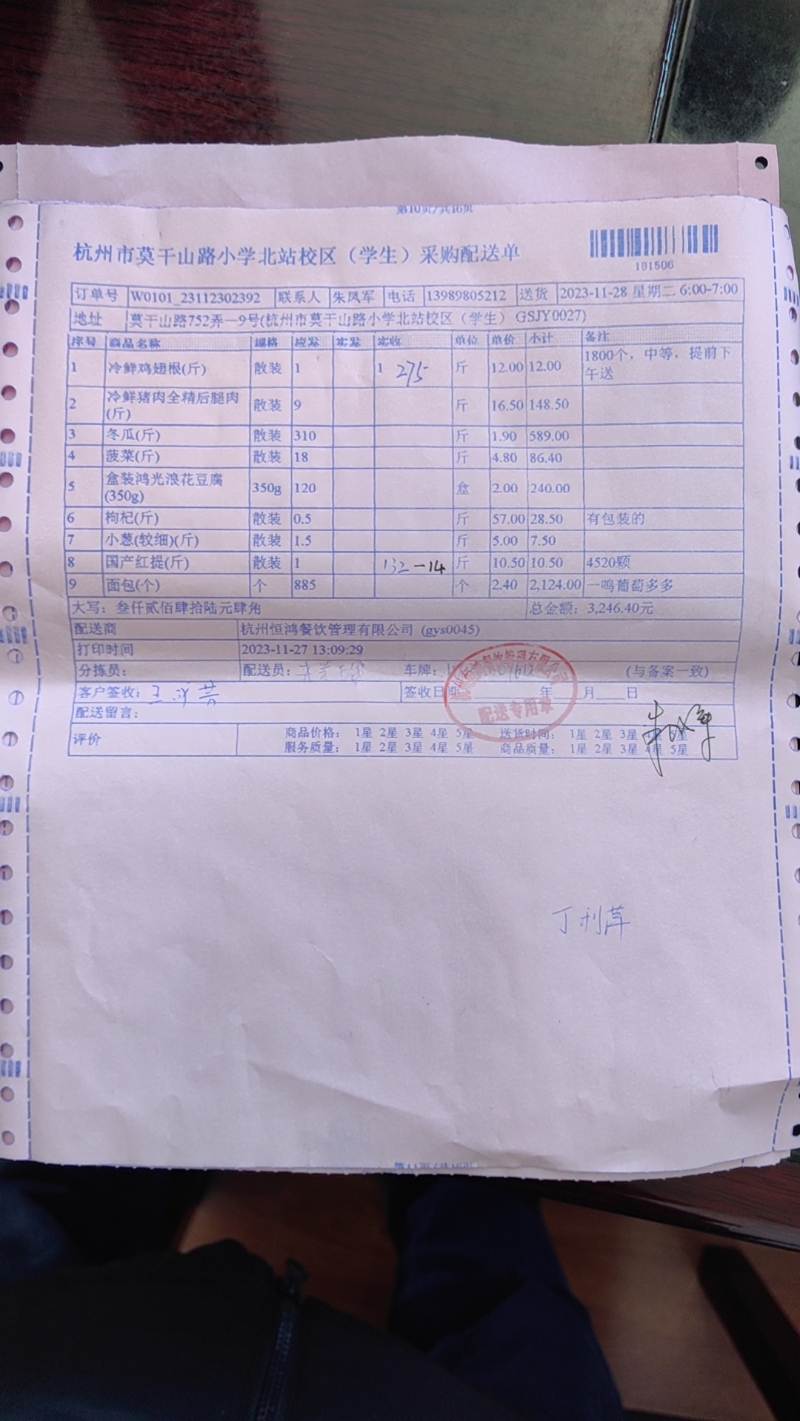 第10页/共16页
杭州市莫干山路小学北站校区（学生）采购配送单
191506
订单号 W0101_23112302392 联系人 朱凤军 电话 13989805212 送货 2023-11-28 星期二 6:00-7:00
地址 莫干山路752弄一9号(杭州市莫干山路小学北站校区（学生）GSJY0027)
序号 商品名称 规格 应发 实发 实收 单位 单价 小计 备注
1 冷鲜鸡翅根(斤) 散装 1 1 275 斤 12.00 12.00 1800个，中等，提前下午送
2 冷鲜猪肉全精后腿肉(斤) 散装 9 斤 16.50 148.50
3 冬瓜(斤) 散装 310 斤 1.90 589.00
4 菠菜(斤) 散装 18 斤 4.80 86.40
5 盒装鸿光浪花豆腐(350g) 350g 120 盒 2.00 240.00
6 枸杞(斤) 散装 0.5 斤 57.00 28.50 有包装的
7 小葱(较细)(斤) 散装 1.5 斤 5.00 7.50
8 国产红提(斤) 散装 1 132-14 斤 10.50 10.50 4520颗
9 面包(个) 个 885 个 2.40 2,124.00 一鸣葡萄多多
大写：叁仟贰佰肆拾陆元肆角 总金额：3,246.40元
配送商 杭州恒鸿餐饮管理有限公司 (gys0045)
打印时间 2023-11-27 13:09:29
分拣员： 配送员： 车牌： (与备案一致)
客户签收： 签收日期 年 月 日
配送专用章
配送留言：
评价 商品价格： 1星 2星 3星 4星 5星 送货时间： 1星 2星 3星 4星 5星
服务质量： 1星 2星 3星 4星 5星 商品质量： 1星 2星 3星 4星 5星
丁利萍